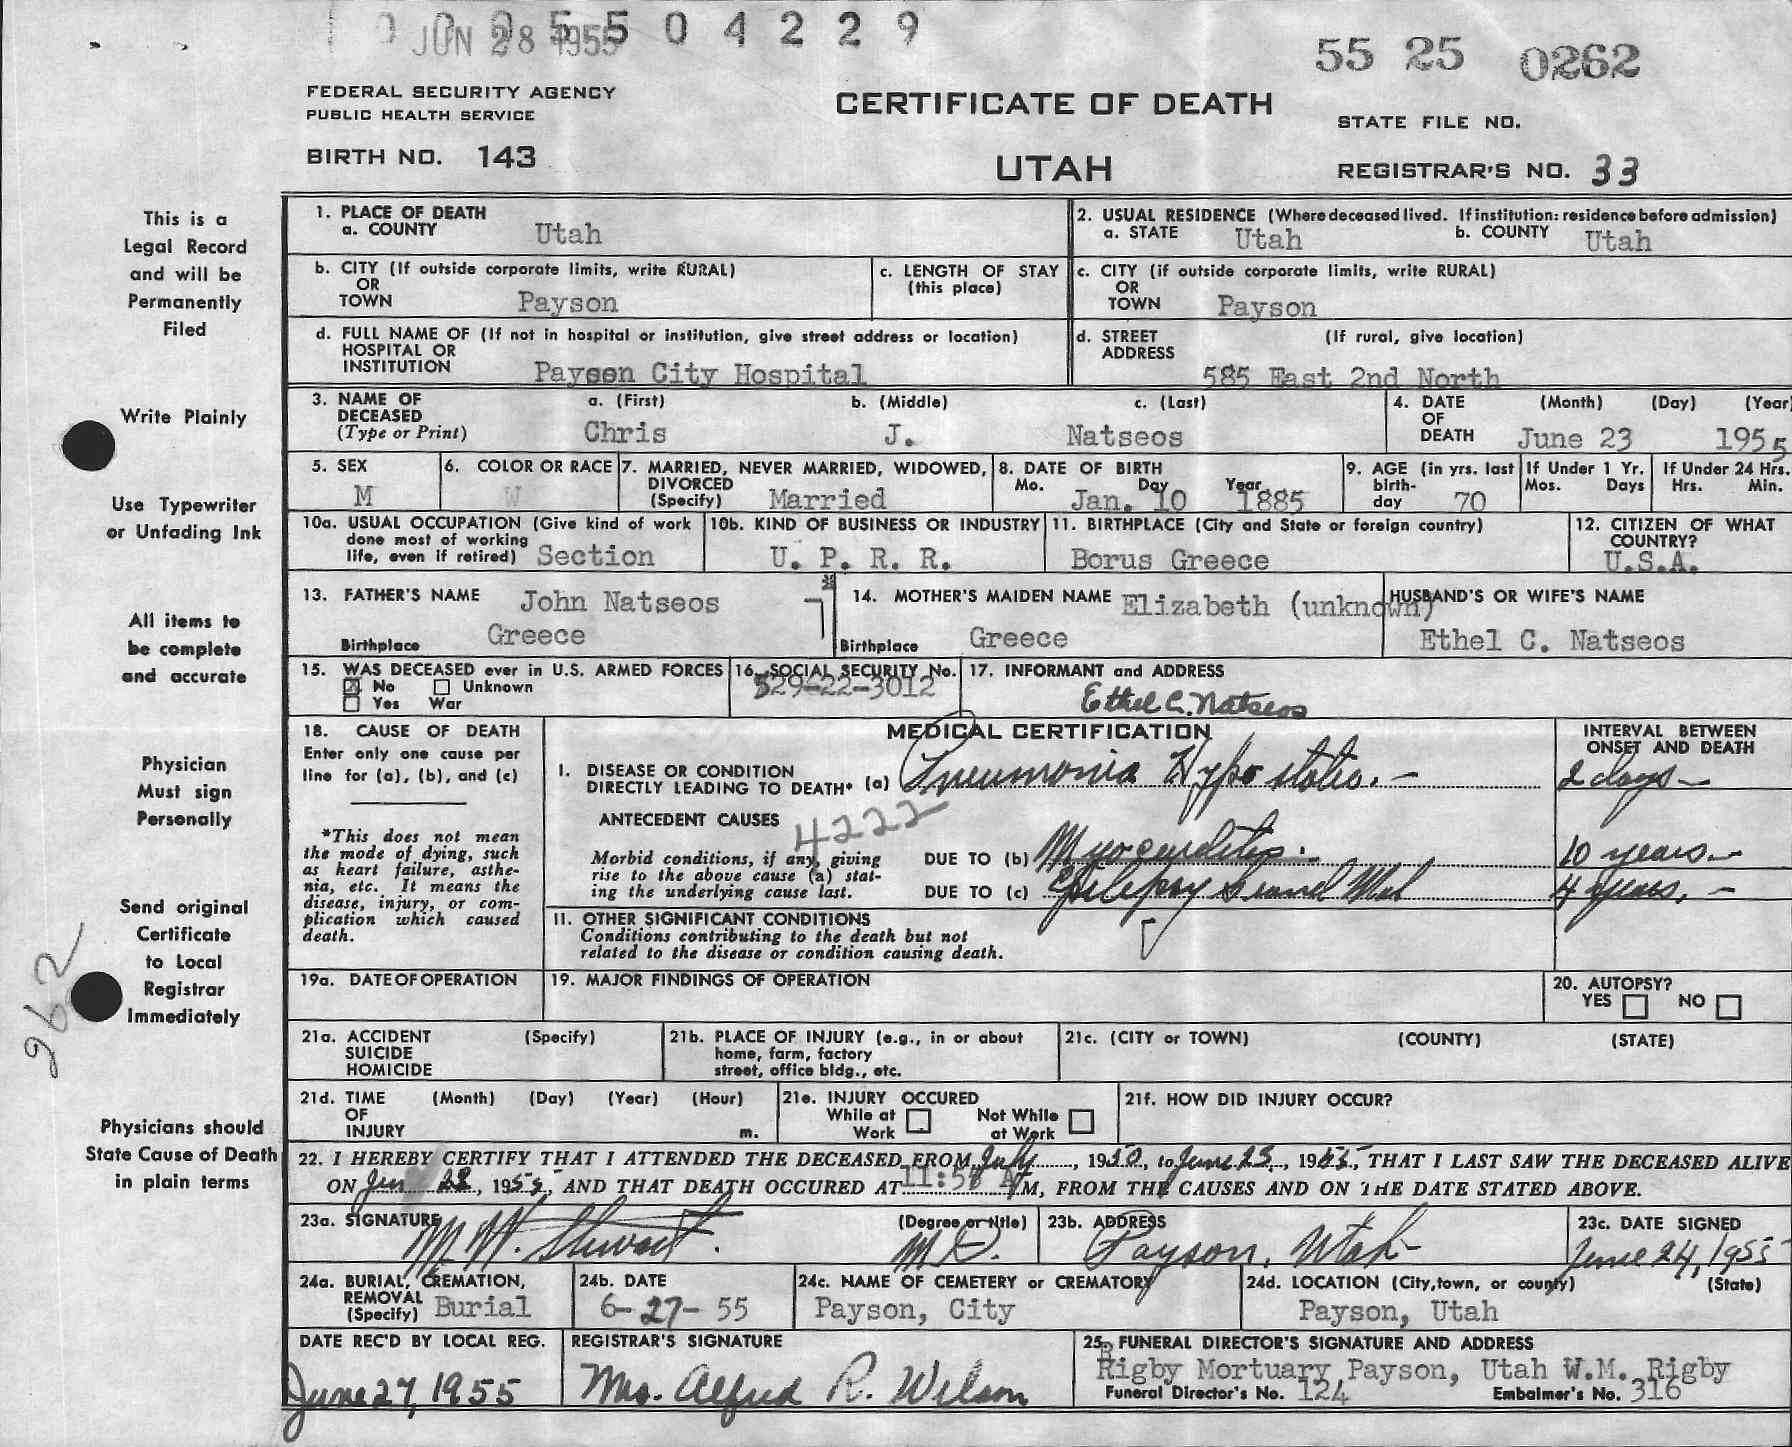 0 0 0 5 5 0 4 2 2 9
JUN 28 1955
55 25 0262
FEDERAL SECURITY AGENCY
PUBLIC HEALTH SERVICE
BIRTH NO. 143
CERTIFICATE OF DEATH
UTAH
STATE FILE NO.
REGISTRAR'S NO. 33
This is a
Legal Record
and will be
Permanently
Filed
Write Plainly
Use Typewriter
or Unfading Ink
All items to
be complete
and accurate
Physician
Must sign
Personally
Send original
Certificate
to Local
Registrar
Immediately
962
Physicians should
State Cause of Death
in plain terms
1. PLACE OF DEATH
a. COUNTY Utah
2. USUAL RESIDENCE (Where deceased lived. If institution: residence before admission)
a. STATE Utah b. COUNTY Utah
b. CITY (If outside corporate limits, write RURAL)
OR
TOWN Payson
c. LENGTH OF STAY
(this place)
c. CITY (if outside corporate limits, write RURAL)
OR
TOWN Payson
d. FULL NAME OF (If not in hospital or institution, give street address or location)
HOSPITAL OR
INSTITUTION Payson City Hospital
d. STREET (If rural, give location)
ADDRESS
585 East 2nd North
3. NAME OF DECEASED (Type or Print)
a. (First) b. (Middle) c. (Last)
Chris J. Natseos
4. DATE OF DEATH (Month) (Day) (Year)
June 23 1955
5. SEX
M
6. COLOR OR RACE
W
7. MARRIED, NEVER MARRIED, WIDOWED,
DIVORCED
(Specify) Married
8. DATE OF BIRTH
Mo. Day Year
Jan. 10 1885
9. AGE (in yrs. last
birth-
day 70
If Under 1 Yr.
Mos. Days
If Under 24 Hrs.
Hrs. Min.
10a. USUAL OCCUPATION (Give kind of work
done most of working
life, even if retired) Section
10b. KIND OF BUSINESS OR INDUSTRY
U. P. R. R.
11. BIRTHPLACE (City and State or foreign country)
Borus Greece
12. CITIZEN OF WHAT
COUNTRY?
U.S.A.
13. FATHER'S NAME John Natseos
Birthplace Greece
14. MOTHER'S MAIDEN NAME Elizabeth (unknown)
Birthplace Greece
HUSBAND'S OR WIFE'S NAME
Ethel C. Natseos
15. WAS DECEASED ever in U.S. ARMED FORCES
No Unknown
Yes War
16. SOCIAL SECURITY No.
529-22-3012
17. INFORMANT and ADDRESS
Ethel C. Natseos
18. CAUSE OF DEATH
Enter only one cause per
line for (a), (b), and (c)
*This does not mean
the mode of dying, such
as heart failure, asthe-
nia, etc. It means the
disease, injury, or com-
plication which caused
death.
MEDICAL CERTIFICATION
INTERVAL BETWEEN
ONSET AND DEATH
I. DISEASE OR CONDITION
DIRECTLY LEADING TO DEATH* (a) Pneumonia Hypostatic. - 2 days -
ANTECEDENT CAUSES 4222
Morbid conditions, if any, giving
rise to the above cause (a) stat-
ing the underlying cause last.
DUE TO (b) Myocarditis. 10 years -
DUE TO (c) Epilepsy Grand Mal 4 years. -
II. OTHER SIGNIFICANT CONDITIONS
Conditions contributing to the death but not
related to the disease or condition causing death.
19a. DATE OF OPERATION
19. MAJOR FINDINGS OF OPERATION
20. AUTOPSY?
YES NO
21a. ACCIDENT (Specify)
SUICIDE
HOMICIDE
21b. PLACE OF INJURY (e.g., in or about
home, farm, factory
street, office bldg., etc.
21c. (CITY or TOWN) (COUNTY) (STATE)
21d. TIME (Month) (Day) (Year) (Hour)
OF
INJURY m.
21e. INJURY OCCURED
While at Work Not While at Work
21f. HOW DID INJURY OCCUR?
22. I HEREBY CERTIFY THAT I ATTENDED THE DECEASED FROM July, 1950, to June 23, 1955, THAT I LAST SAW THE DECEASED ALIVE
ON Jun 23, 1955, AND THAT DEATH OCCURED AT 11:55 A M, FROM THE CAUSES AND ON THE DATE STATED ABOVE.
23a. SIGNATURE (Degree or title)
M. W. Stewart. M.D.
23b. ADDRESS
Payson, Utah
23c. DATE SIGNED
June 24, 1955
24a. BURIAL, CREMATION,
REMOVAL
(Specify) Burial
24b. DATE
6-27-55
24c. NAME OF CEMETERY or CREMATORY
Payson, City
24d. LOCATION (City, town, or county) (State)
Payson, Utah
DATE REC'D BY LOCAL REG.
June 27, 1955
REGISTRAR'S SIGNATURE
Mrs. Alfred R. Wilson
25. FUNERAL DIRECTOR'S SIGNATURE AND ADDRESS
Rigby Mortuary Payson, Utah W.M. Rigby
Funeral Director's No. 124 Embalmer's No. 316